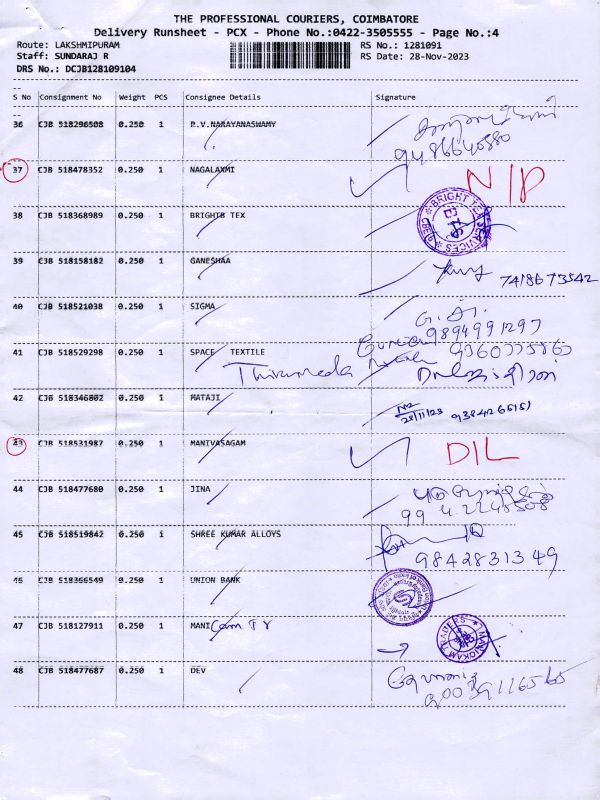 THE PROFESSIONAL COURIERS, COIMBATORE
Delivery Runsheet - PCX - Phone No.:0422-3505555 - Page No.:4
Route: LAKSHMIPURAM RS No.: 1281091
Staff: SUNDARAJ R RS Date: 28-Nov-2023
DRS No.: DCJB128109104
S No Consignment No Weight PCS Consignee Details Signature
36 CJB 518296508 0.250 1 P.V.NARAYANASWAMY
9486640880
37 CJB 518478352 0.250 1 NAGALAXMI N/D
38 CJB 518368989 0.250 1 BRIGHTB TEX
BRIGHT TEX SERVICES
39 CJB 518158182 0.250 1 GANESHAA
7418673542
40 CJB 518521038 0.250 1 SIGMA
9894991297
41 CJB 518529298 0.250 1 SPACE TEXTILE
42 CJB 518346802 0.250 1 MATAJI
28/11/23
43 CJB 518531987 0.250 1 MANIVASAGAM DIL
44 CJB 518477680 0.250 1 JINA
45 CJB 518519842 0.250 1 SHREE KUMAR ALLOYS
9842831349
46 CJB 518366549 0.250 1 UNION BANK
47 CJB 518127911 0.250 1 MANI
MANICKAM TRADERS
48 CJB 518477687 0.250 1 DEV